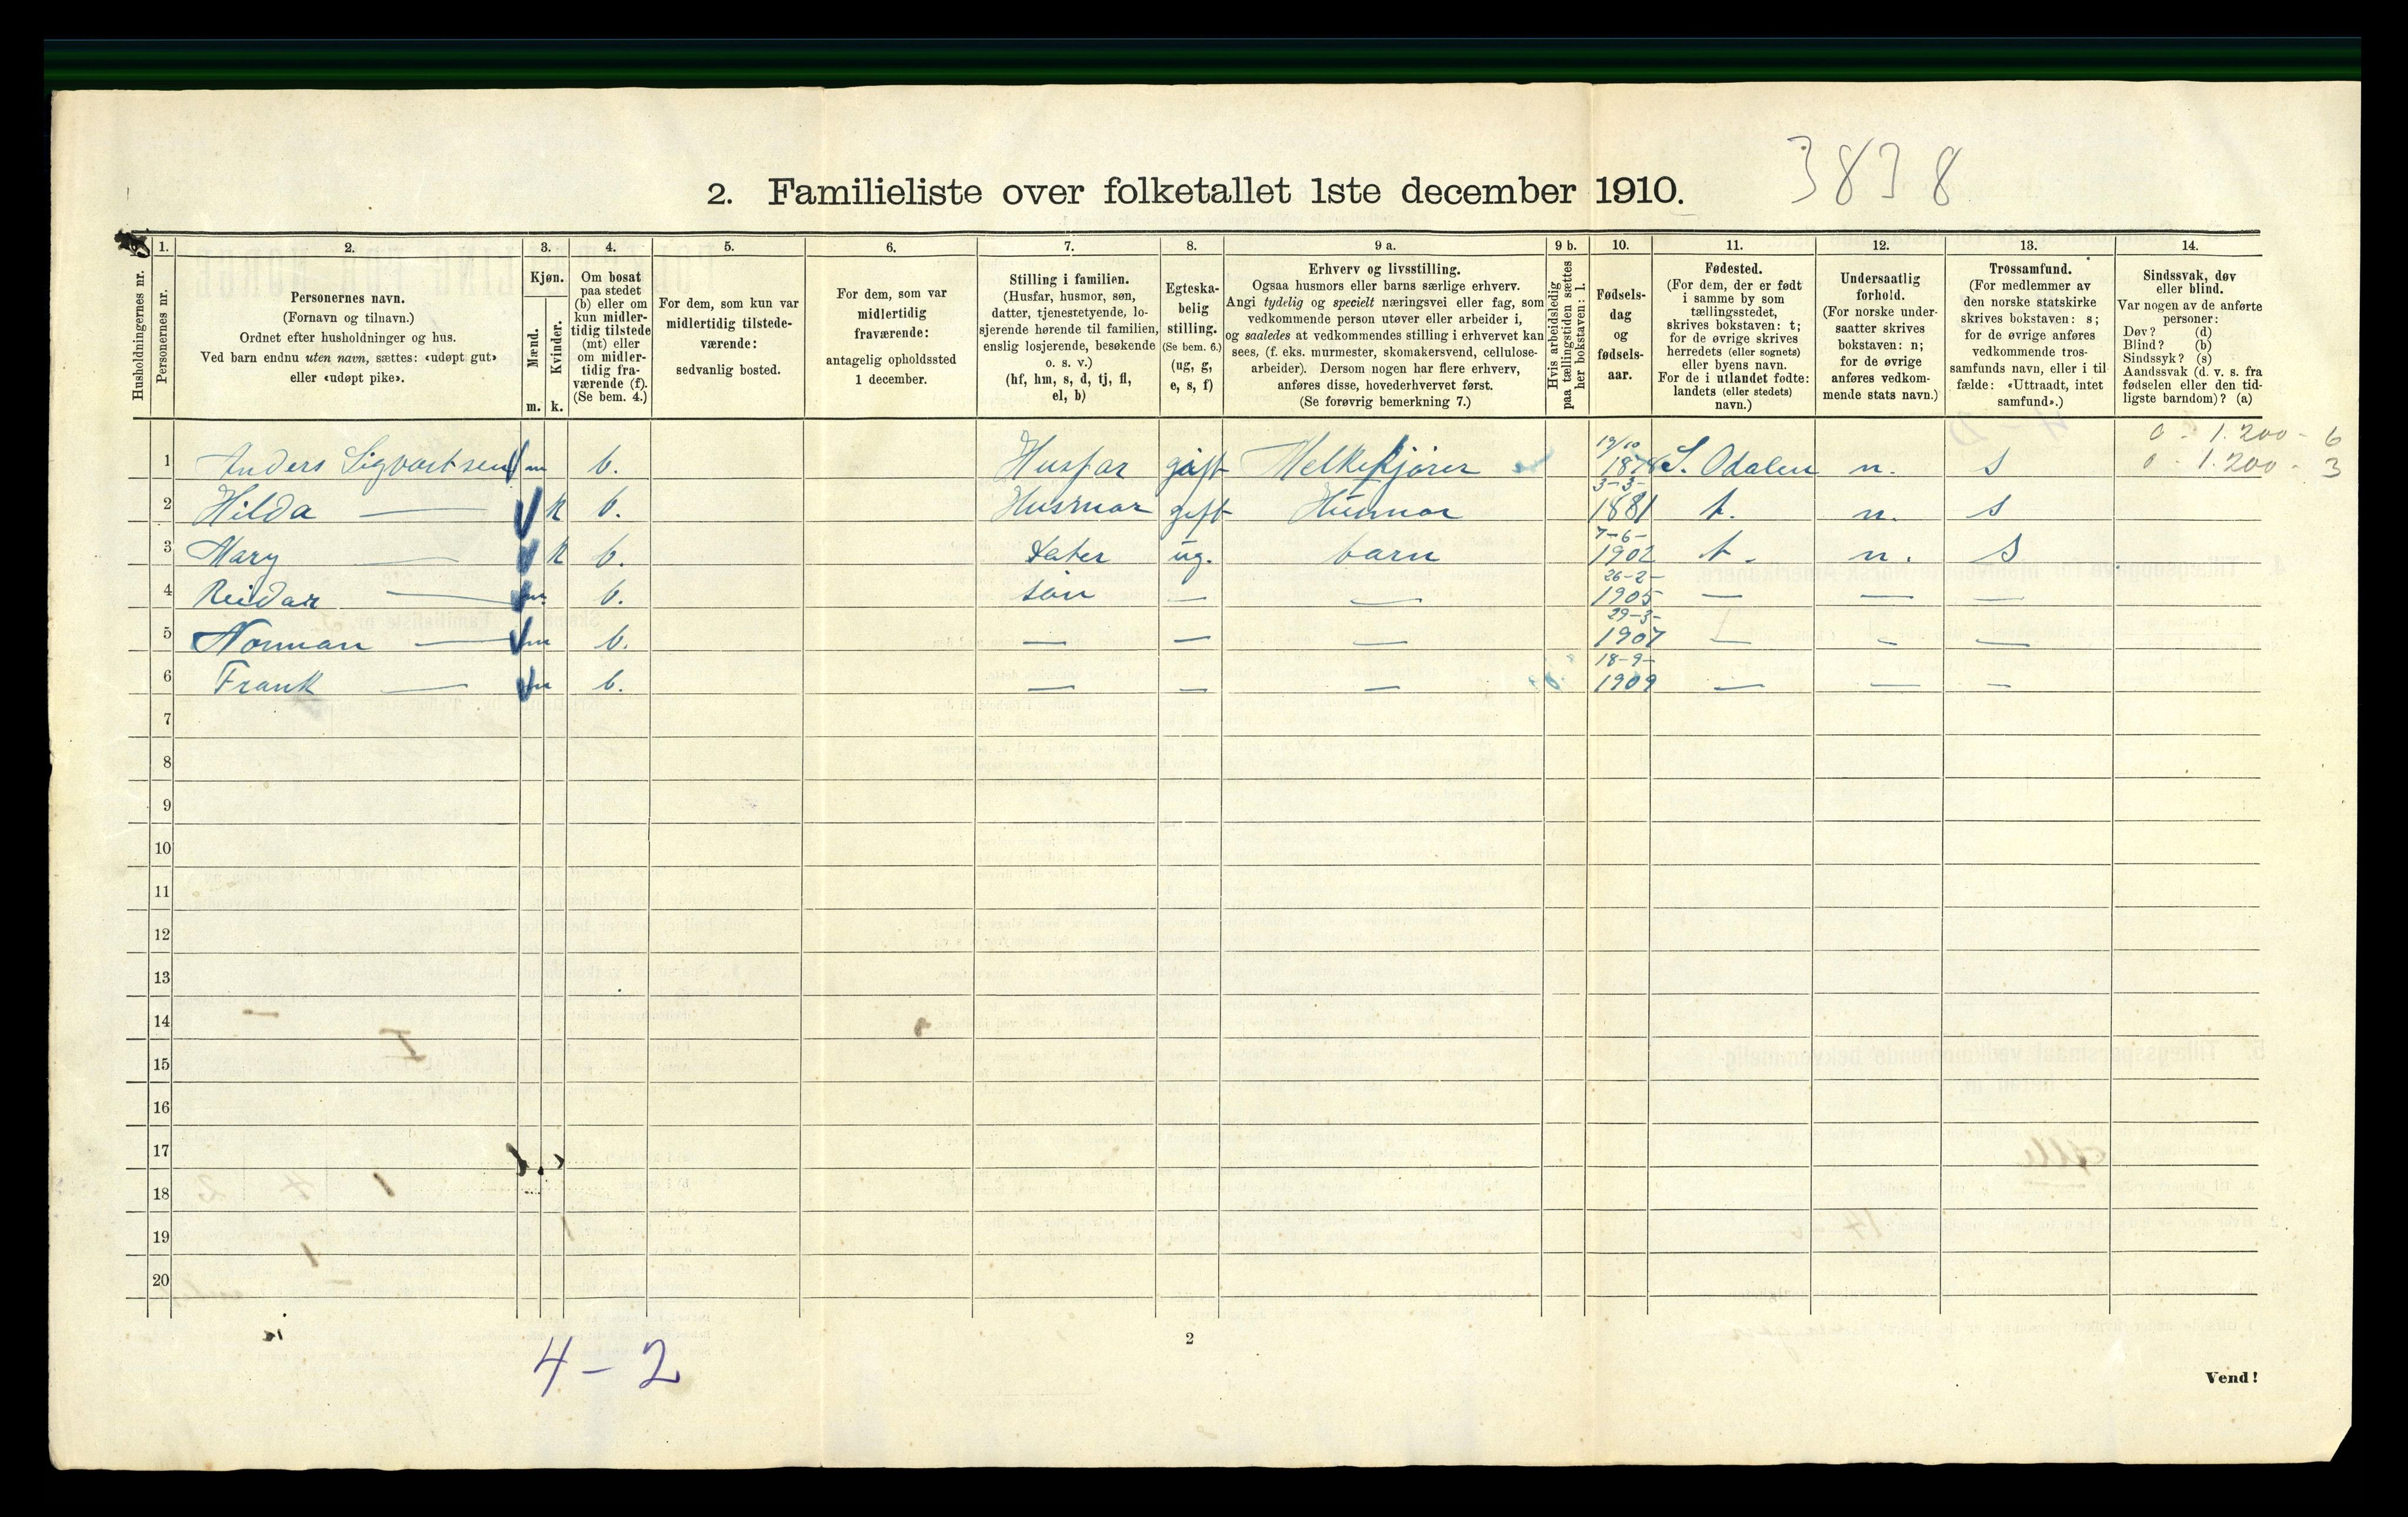 3838
2. Familieliste over folketallet 1ste december 1910.
1. 2. 3. 4. 5. 6. 7. 8. 9 a. 9 b. 10. 11. 12. 13. 14.
Husholdningernes nr.
Personernes nr.
Personernes navn.
(Fornavn og tilnavn.)
Ordnet efter husholdninger og hus.
Ved barn endnu uten navn, sættes: «udøpt gut»
eller «udøpt pike».
Kjøn.
Mænd.
Kvinder.
m. k.
Om bosat
paa stedet
(b) eller om
kun midler-
tidig tilstede
(mt) eller
om midler-
tidig fra-
værende (f).
(Se bem. 4.)
For dem, som kun var
midlertidig tilstede-
værende:
sedvanlig bosted.
For dem, som var
midlertidig
fraværende:
antagelig opholdssted
1 december.
Stilling i familien.
(Husfar, husmor, søn,
datter, tjenestetyende, lo-
sjerende hørende til familien,
enslig losjerende, besøkende
o. s. v.)
(hf, hm, s, d, tj, fl,
el, b)
Egteska-
belig
stilling.
(Se bem. 6.)
(ug, g,
e, s, f)
Erhverv og livsstilling.
Ogsaa husmors eller barns særlige erhverv.
Angi tydelig og specielt næringsvei eller fag, som
vedkommende person utøver eller arbeider i,
og saaledes at vedkommendes stilling i erhvervet kan
sees, (f. eks. murmester, skomakersvend, cellulose-
arbeider). Dersom nogen har flere erhverv,
anføres disse, hovederhvervet først.
(Se forøvrig bemerkning 7.)
Hvis arbeidsledig
paa tællingstiden sættes
her bokstaven: l.
Fødsels-
dag
og
fødsels-
aar.
Fødested.
(For dem, der er født
i samme by som
tællingsstedet,
skrives bokstaven: t;
for de øvrige skrives
herredets (eller sognets)
eller byens navn.
For de i utlandet fødte:
landets (eller stedets)
navn.)
Undersaatlig
forhold.
(For norske under-
saatter skrives
bokstaven: n;
for de øvrige
anføres vedkom-
mende stats navn.)
Trossamfund.
(For medlemmer av
den norske statskirke
skrives bokstaven: s;
for de øvrige anføres
vedkommende tros-
samfunds navn, eller i til-
fælde: «Uttraadt, intet
samfund».)
Sindssvak, døv
eller blind.
Var nogen av de anførte
personer:
Døv? (d)
Blind? (b)
Sindssyk? (s)
Aandssvak (d. v. s. fra
fødselen eller den tid-
ligste barndom)? (a)
0 - 1.200 - 6
0 - 1.200 - 3
1 Anders Sigvartsen m b. Husfar gift Melkekjører 1878 S. Odalen n. s
2 Hilda — k b. Husmor gift Husmor 3-3- 1881 t. n. s
3 Mary — k b. Dater ug. barn 7-6- 1902 t. n. s
4 Reidar — m. b. søn — — 26-2- 1905 — — —
5 Norman — m b. — — — 29-3- 1907 — — —
6 Frank — m b. — — — 18-9- 1909 — — —
7
8
9
10
11
12
13
14
15
16
17
18
19
20
4 - 2
2
Vend!